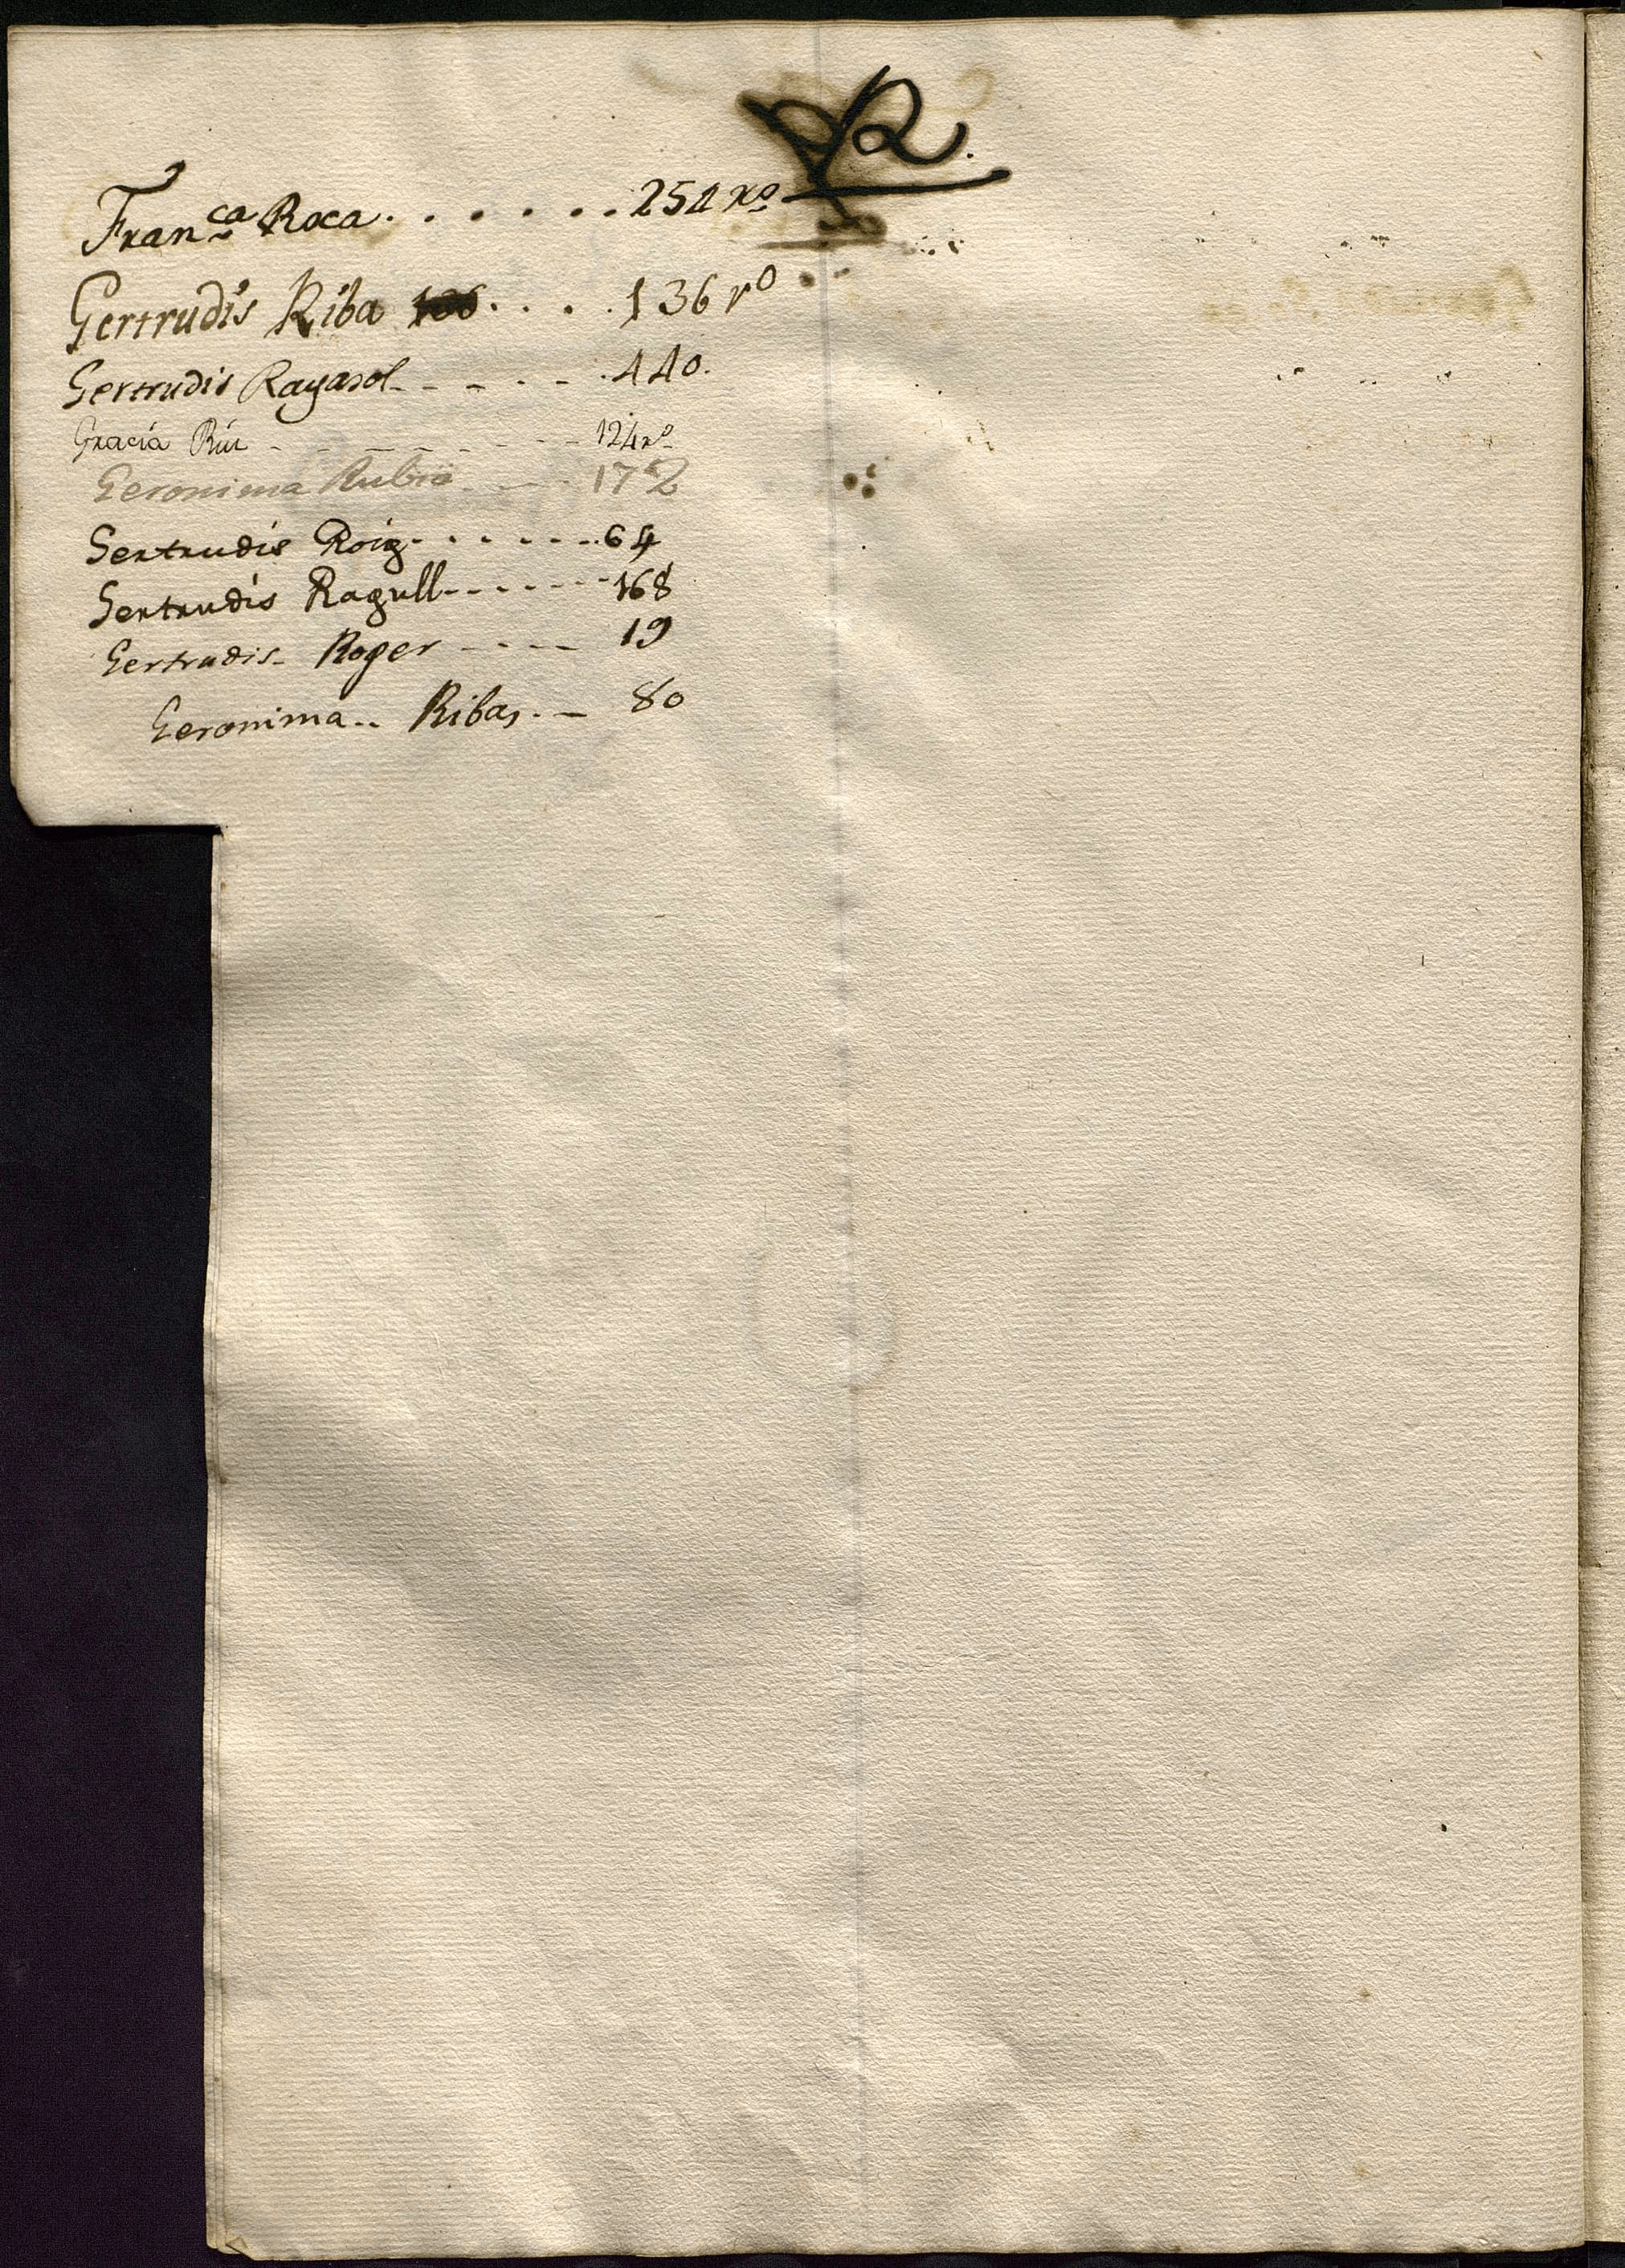 R.
Fran.ca Roca. . . . . . . 254 ro
Gertrudis Riba . . . . 136 ro
Gertrudis Rayasol - - - - - . 440.
Gracia Riu - - - - - - - - 124 ro
Geronima Rubio - - - 172
Gertrudis Roig - - - - - - - 64
Gertrudis Ragull - - - - - - - 168
Gertrudis - Roger - - - - 19
Geronima - - Ribas. - 80